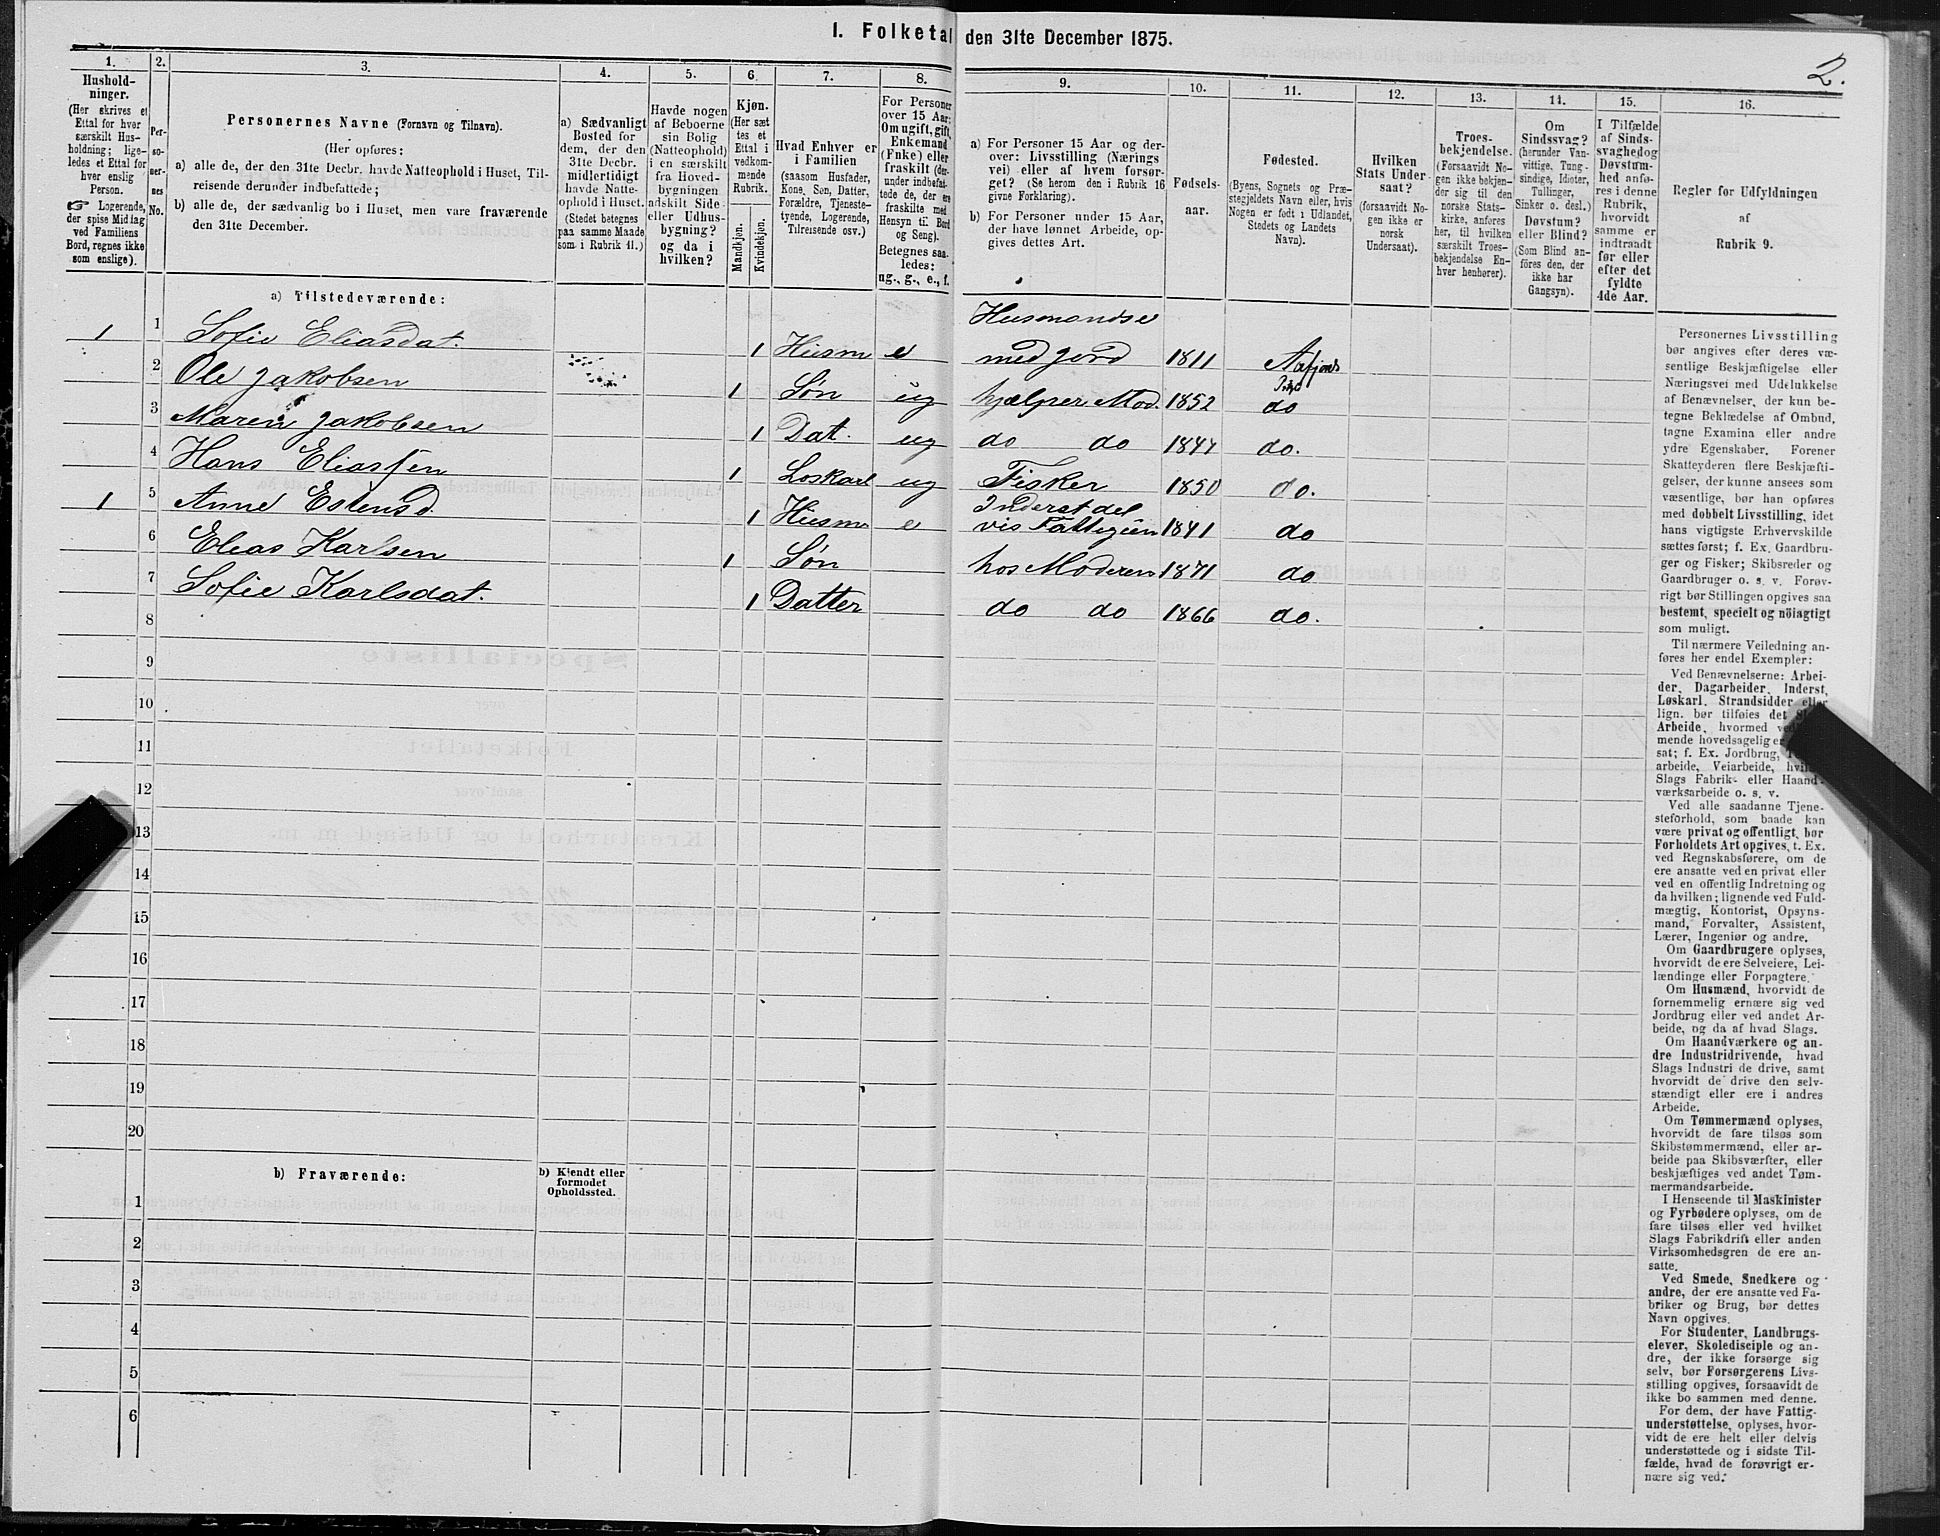 I. Folketal den 31te December 1875.
2.
1.
Hushold-
ninger.
(Her skrives et
Ettal for hver
særskilt Hus-
holdning; lige-
ledes et Ettal for
hver enslig
Person.
☞ Logerende,
der spise Middag
ved Familiens
Bord, regnes ikke
som enslige).
2.
Per-
so-
ner-
nes
No.
3.
Personernes Navne (Fornavn og Tilnavn).
(Her opføres:
a) alle de, der den 31te Decbr. havde Natteophold i Huset, Til-
reisende derunder indbefattede;
b) alle de, der sædvanlig bo i Huset, men vare fraværende
den 31te December.
4.
a) Sædvanligt
Bosted for
dem, der den
31te Decbr.
midlertidigt
havde Natte-
ophold i Huset.
(Stedet betegnes
paa samme Maade
som i Rubrik 11.)
5.
Havde nogen
af Beboerne
sin Bolig
(Natteophold)
i en særskilt
fra Hoved-
bygningen
adskilt Side-
eller Udhus-
bygning?
og da i
hvilken?
6.
Kjøn.
(Her sæt
tes et
Ettal i
vedkom-
mende
Rubrik.
Mandkjøn.
Kvindekjøn.
7.
Hvad Enhver er
i Familien
(saasom Husfader,
Kone, Søn, Datter,
Forældre, Tjeneste-
tyende, Logerende,
Tilreisende osv.)
8.
For Personer
over 15 Aar:
Om ugift, gift,
Enkemand
(Enke) eller
fraskilt (der-
under indbefat-
tede de, der ere
fraskilte med
Hensyn til Bord
og Seng).
Betegnes saa-
ledes:
ug., g., e., f.
9.
a) For Personer 15 Aar og der-
over: Livsstilling (Nærings
vei) eller af hvem forsør-
get? (Se herom den i Rubrik 16
givne Forklaring).
b) For Personer under 15 Aar,
der have lønnet Arbeide, op-
gives dettes Art.
10.
Fødsels-
aar.
11.
Fødested.
(Byens, Sognets og Præ-
stegjeldets Navn eller, hvis
Nogen er født i Udlandet,
Stedets og Landets
Navn).
12.
Hvilken
Stats Under
saat?
(forsaavidt No-
gen ikke er
norsk
Undersaat).
13.
Troes-
bekjendelse.
(Forsaavidt No-
gen ikke bekjen-
der sig til den
norske Stats-
kirke, anføres
her, til hvilken
særskilt Troes-
bekjendelse En-
hver henhører).
14.
Om
Sindssvag?
(herunder Van-
vittige, Tung-
sindige, Idioter,
Tullinger,
Sinker o. desl.)
Døvstum?
eller Blind?
(Som Blind an-
føres den, der
ikke har
Gangsyn).
15.
I Tilfælde
af Sinds-
svaghed og
Døvstum-
hed anfø-
res i denne
Rubrik,
hvorvidt
samme er
indtraadt
før eller
efter det
fyldte
4de Aar.
16.
Regler for Udfyldningen
af
Rubrik 9.
a) Tilstedeværende:
1 1 Sofie Eliasdat. 1 Husm e Husmandse med jord 1811 Aafjords Prgj
2 Ole Jakobsen 1 Søn ug hjælper Mod. 1852 do
3 Maren Jakobsen 1 Dat. ug do do 1847 do.
4 Hans Eliassen 1 Loskarl ug Fisker 1850 do.
1 5 Anne Estensd. 1 Husm e Inderst del vis Fattigun 1841 do
6 Elias Karlsen 1 Søn hos Moderen 1871 do
7 Sofie Karlsdat. 1 Datter do do 1866 do.
8
9
10
11
12
13
14
15
16
17
18
19
20
b) Fraværende:
b) Kjendt eller
formodet
Opholdssted.
1
2
3
4
5
6
Personernes Livsstilling
bør angives efter deres væ-
sentlige Beskjæftigelse eller
Næringsvei med Udelukkelse
af Benævnelser, der kun be-
tegne Beklædelse af Ombud,
tagne Examina eller andre
ydre Egenskaber. Forener
Skatteyderen flere Beskjæfti-
gelser, der kunne ansees som
væsentlige, bør han opføres
med dobbelt Livsstilling, idet
hans vigtigste Erhvervskilde
sættes først; f. Ex. Gaardbru-
ger og Fisker; Skibsreder og
Gaardbruger o. s. v. Forøv-
rigt bør Stillingen opgives saa
bestemt, specielt og nöiagtigt
som muligt.
Til nærmere Veiledning an-
føres her endel Exempler:
Ved Benævnelserne: Arbei-
der, Dagarbeider, Inderst,
Løskarl, Strandsidder eller
lign. bør tilføies det
Arbeide, hvormed
mende hovedsagelig er
sat; f. Ex. Jordbrug,
arbeide, Veiarbeide,
Slags Fabrik- eller Haand-
værksarbeide o. s. v.
Ved alle saadanne Tjene-
steforhold, som baade kan
være privat og offentligt, bør
Forholdets Art opgives, t. Ex.
ved Regnskabsførere, om de
ere ansatte ved en privat eller
ved en offentlig Indretning og
da hvilken; lignende ved Fuld-
mægtig, Kontorist, Opsyns-
mand, Forvalter, Assistent,
Lærer, Ingeniør og andre.
Om Gaardbrugere oplyses,
hvorvidt de ere Selveiere, Lei-
lændinge eller Forpagtere.
Om Husmænd, hvorvidt de
fornemmelig ernære sig ved
Jordbrug eller ved andet Ar-
beide, og da af hvad Slags.
Om Haandværkere og an-
dre Industridrivende, hvad
Slags Industri de drive, samt
hvorvidt de drive den selv-
stændigt eller ere i andres
Arbeide.
Om Tømmermænd oplyses,
hvorvidt de fare tilsøs som
Skibstømmermænd, eller ar-
beide paa Skibsværfter, eller
beskjæftiges ved andet Tøm-
mermandsarbeide.
I Henseende til Maskinister
og Fyrbødere oplyses, om de
fare tilsøs eller ved hvilket
Slags Fabrikdrift eller anden
Virksomhedsgren de ere an-
satte.
Ved Smede, Snedkere og
andre, der ere ansatte ved Fa-
briker og Brug, bør dettes
Navn opgives.
For Studenter, Landbrugs-
elever, Skoledisciple og an-
dre, der ikke forsørge sig
selv, bør Forsørgerens Livs-
stilling opgives, forsaavidt de
ikke bo sammen med denne.
For dem, der have Fattig-
understøttelse, oplyses, hvor-
vidt de ere helt eller delvis
understøttede og i sidste Til-
fælde, hvad de forøvrigt er-
nære sig ved.